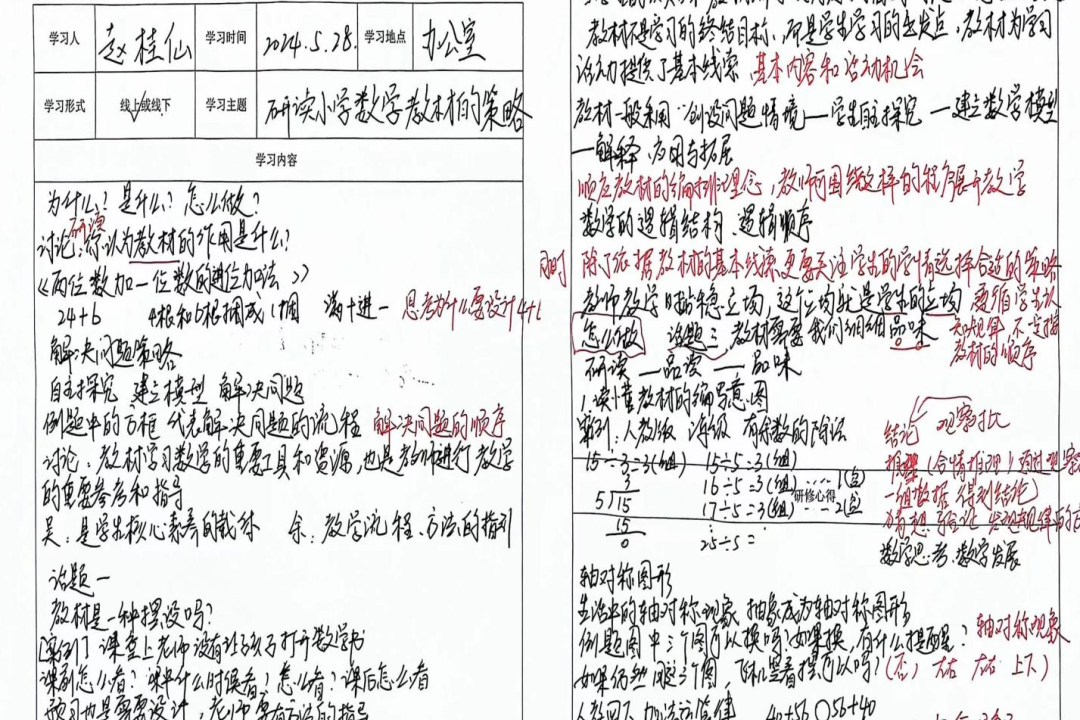 学习人 赵桂仙 学习时间 2024.5.28. 学习地点 办公室
学习形式 线上或线下 学习主题 研读小学数学教材的策略
学习内容
为什么？是什么？怎么做？
研读
讨论：你认为教材的作用是什么？
《两位数加一位数的进位加法》
24+6 4根和6根捆成1捆 满十进一 思考为什么要设计4+6
解决问题策略
自主探究 建立模型 解决问题
例题中的方框 代表解决问题的流程 解决问题的顺序
讨论：教材学习数学的重要工具和资源，也是教师进行教学
的重要参考和指导
吴：是学生核心素养的载体 余：教学流程、方法的指引
话题一
教材是一种摆设吗？
[案例] 课堂上老师没有让孩子打开数学书
课前怎么看？课中什么时候看？怎么看？课后怎么看
预习也是需要设计，老师要有方法的指导
教材不是学习的终结目标，而是学生学习的出发点，教材为学习
活动提供了基本线索 基本内容和活动机会
教材一般采用“创设问题情境—学生自主探究—建立数学模型
—解释、应用与拓展
顺应教材的编排理念，教师可围绕这样的程序展开教学
数学的逻辑结构、逻辑顺序
同时 除了依据教材的基本线索更要关注学生的学情选择合适的策略
教师教学时站稳立场，这个立场就是学生的立场 要循学生认
知规律 不直接
教材的顺序
怎么做 话题三：教材需要我们细细品味
研读—品读—品味
1.读懂教材的编写意图
案例：人教版 有余数的除法
15÷3=3(组) 15÷5=3(组)
16÷5=3(组)……1(盆)
17÷5=3(组)……2(盆)
25÷5=
3
5 15
15
0
研修心得
结论 观察对比
推理(合情推理)通过观察
一组数据 得到结论
猜想 验证 发现规律
数学思考 数学发展
轴对称图形
生活中的轴对称现象 抽象成为轴对称图形
例题图中三个图可以换吗？如果换，有什么提醒？ 轴对称现象
如果仍然用这三个图，飞机竖着摆可以吗？(否) 左右 左右 上下)
人教四下 加法运算律 40+56○56+40